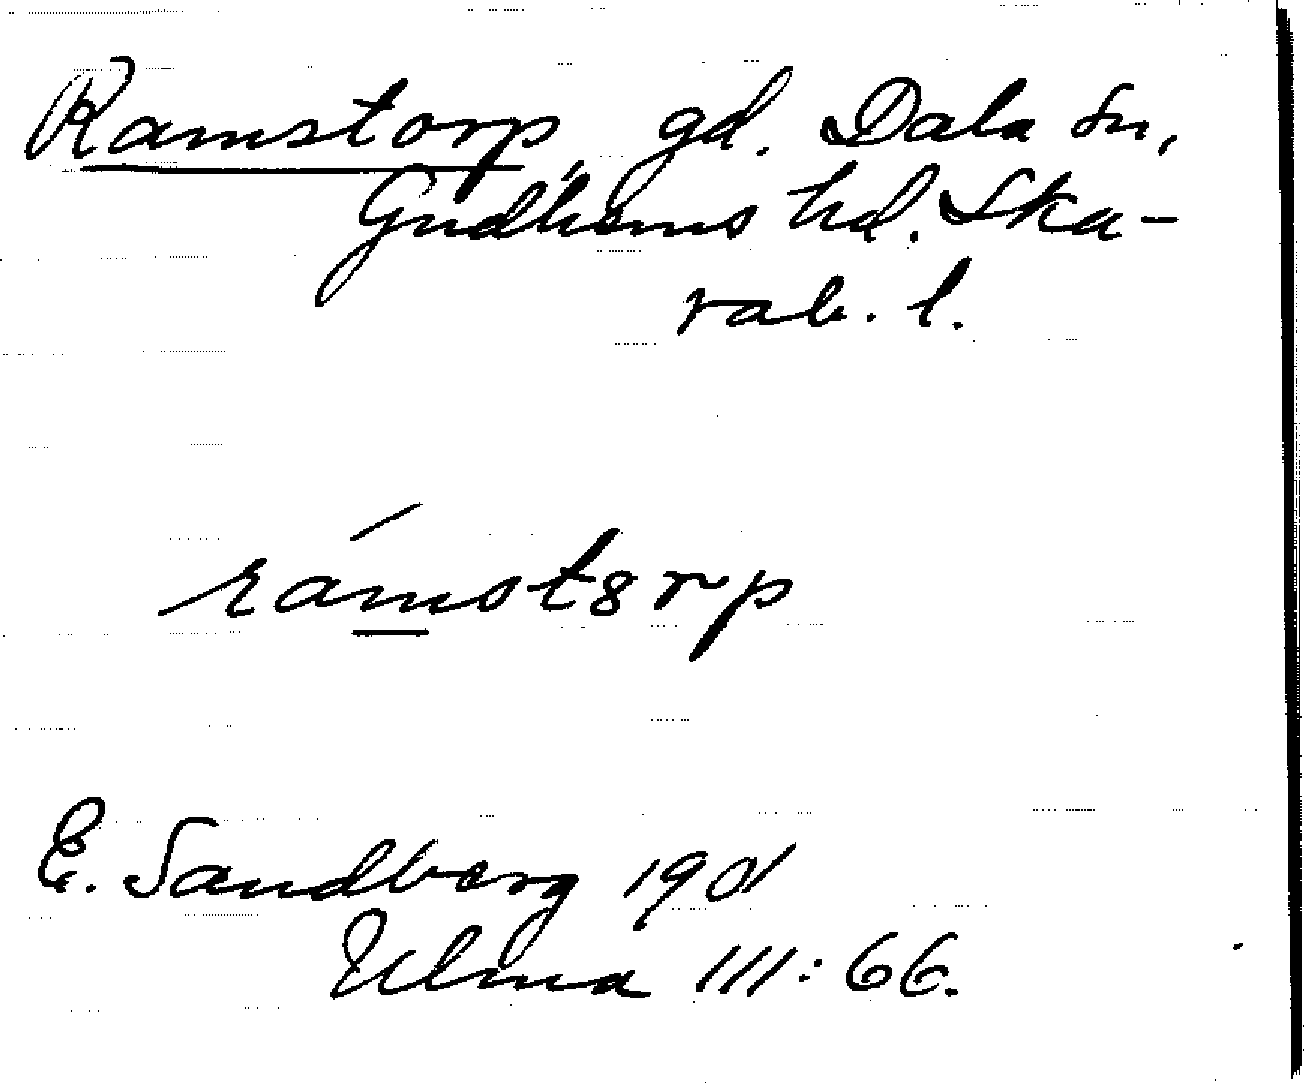 Ramstorp gd. Dala sn,
Gudhems hd. Ska-
rab. l.
rámst8rp
E. Sandberg 1901
Ulma III: 66.